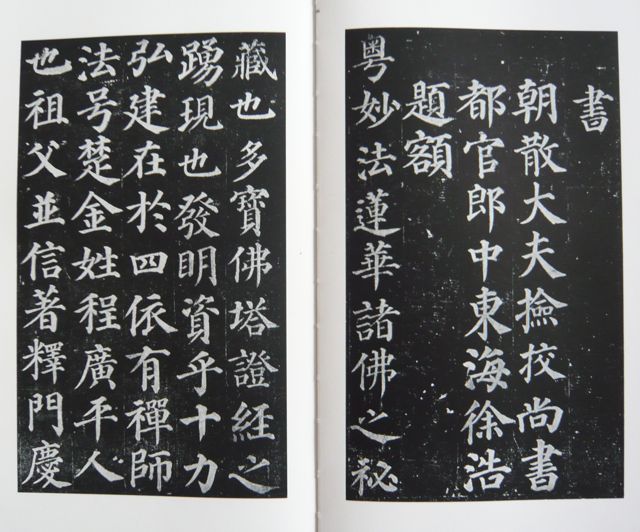 書
朝散大夫撿挍尚書
都官郎中東海徐浩
題額
粤妙法蓮華諸佛之秘
藏也多寶佛塔證經之
踴現也發明資乎十力
弘建在於四依有禪師
法号楚金姓程廣平人
也祖父並信著釋門慶